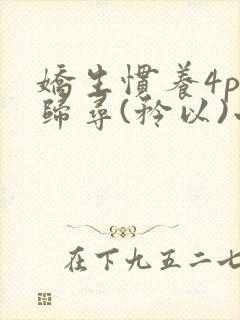 嬌生慣養4p
歸尋(矜以)
在下九五二七